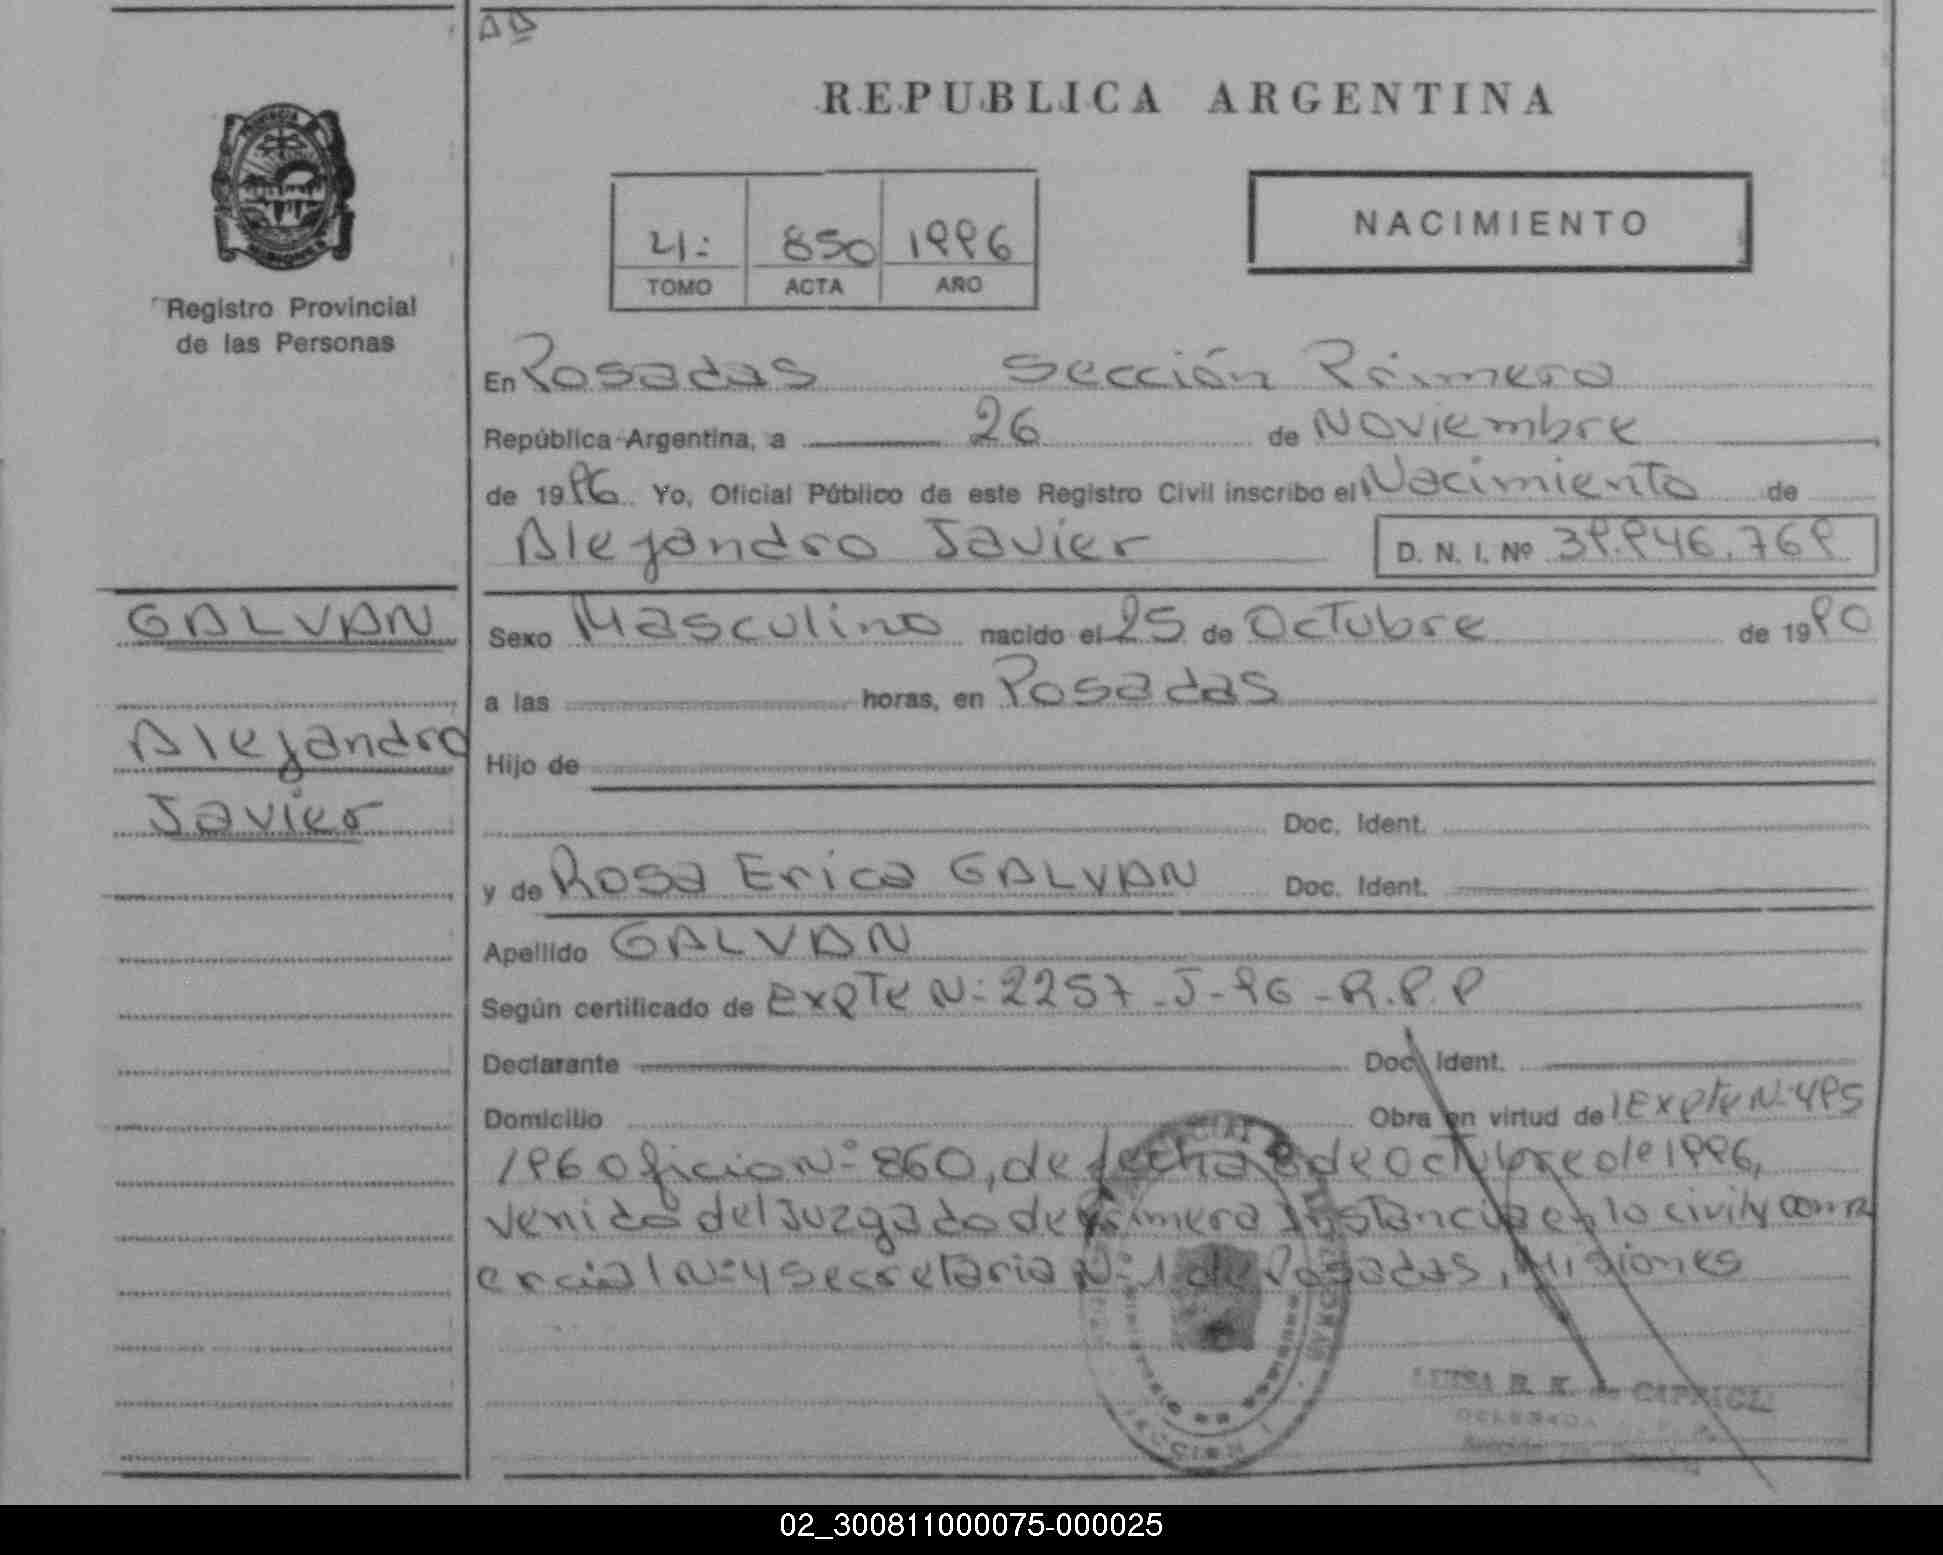 REPUBLICA ARGENTINA
4: 850 1996
TOMO ACTA AÑO
NACIMIENTO
Registro Provincial
de las Personas
En Posadas Sección Primera
República Argentina, a 26 de Noviembre
de 1996 Yo, Oficial Público de este Registro Civil inscribo el Nacimiento de
Alejandro Javier D. N. I. Nº 39.946.769
GALVAN
Alejandro
Javier
Sexo Masculino nacido el 25 de Octubre de 1990
a las horas, en Posadas
Hijo de
Doc. Ident.
y de Rosa Erica GALVAN Doc. Ident.
Apellido GALVAN
Según certificado de Expte N: 2257-J-96-R.P.P
Declarante Doc. Ident.
Domicilio Obra en virtud de Expte N: 495
196 oficio Nº 860, de fecha 8 de Octubre de 1996,
venido del Juzgado de Primera Instancia en lo civil y com
ercial Nº 4 secretaria Nº 1 de Posadas, Misiones
SECCION
LUISA R. K. de
DELEGADA
02_300811000075-000025